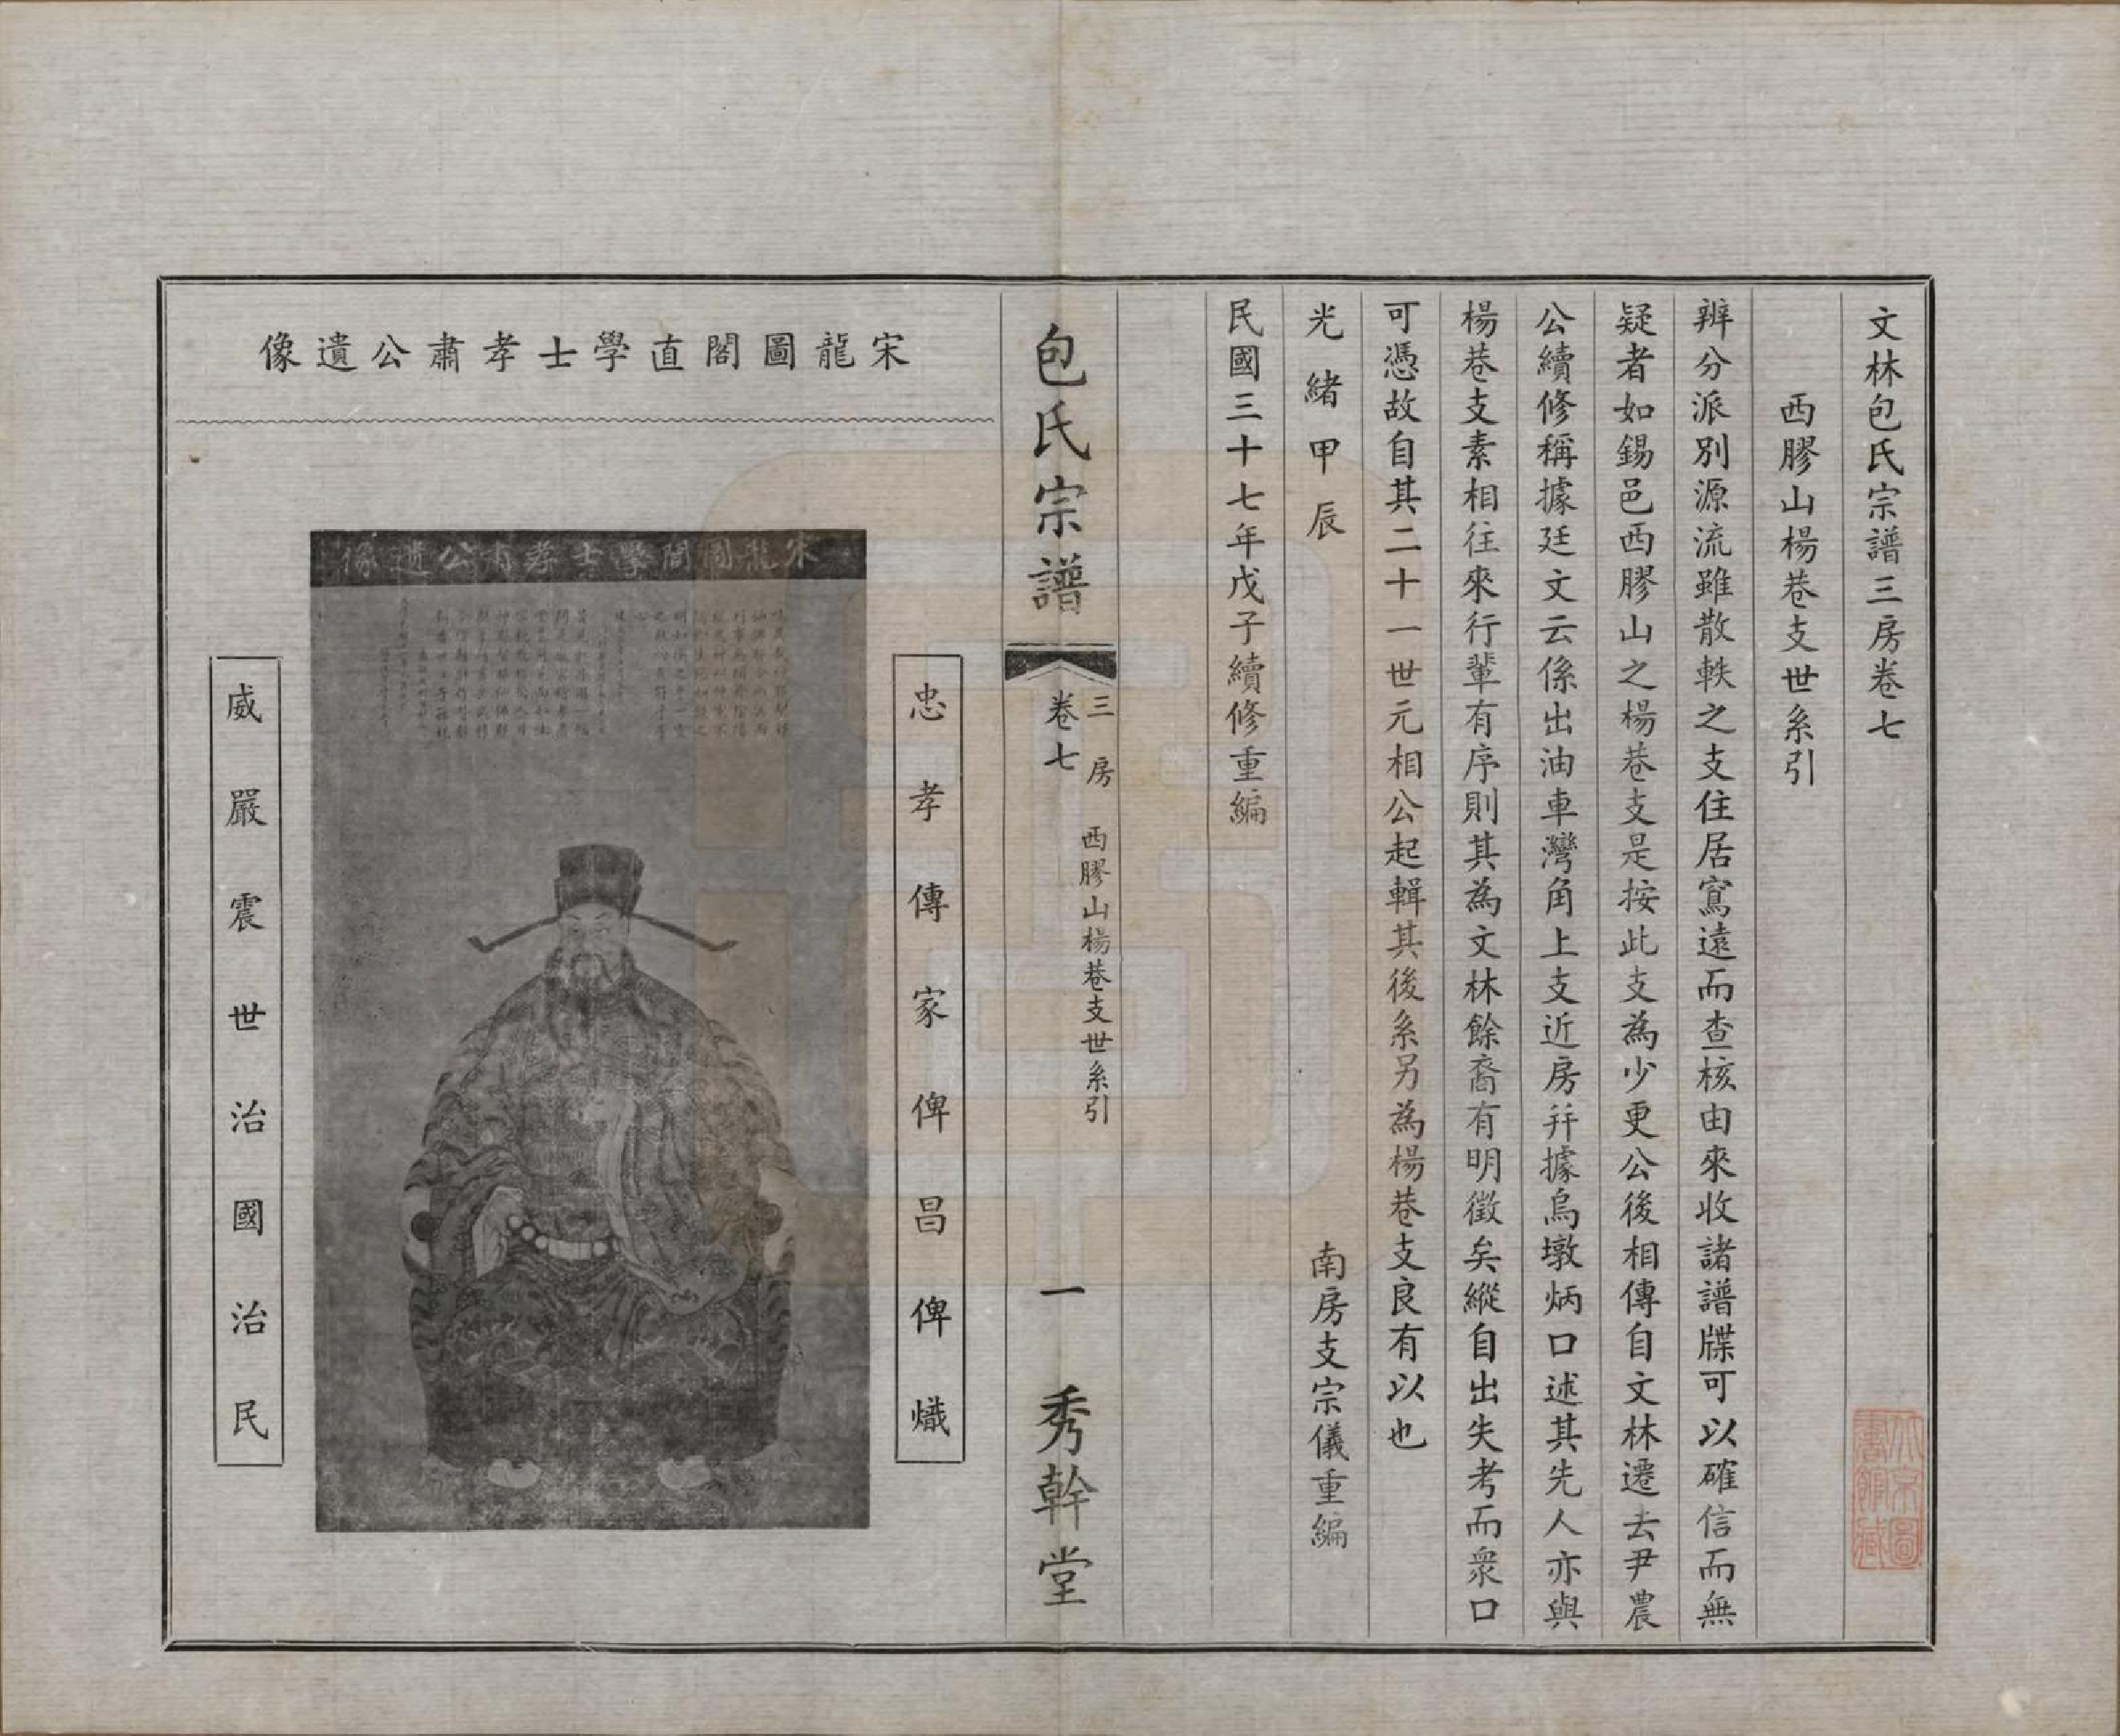 文林包氏宗譜三房卷七
西膠山楊巷支世系引
辨分派別源流雖散軼之支住居寫遠而查核由來收諸譜牒可以確信而無
疑者如錫邑西膠山之楊巷支是按此支為少更公後相傳自文林遷去尹農
公續修稱據廷文云係出油車灣角上支近房幷據烏墩炳口述其先人亦與
楊巷支素相往來行輩有序則其為文林餘裔有明徵矣縱自出失考而衆口
可憑故自其二十一世元相公起輯其後系另為楊巷支良有以也
光緒甲辰
南房支宗儀重編
民國三十七年戊子續修重編
包氏宗譜
三房 西膠山楊巷支世系引
卷七
一
秀幹堂
宋龍圖閣直學士孝肅公遺像
忠孝傳家俾昌俾熾
宋龍圖閣學士孝肅公遺像
威嚴震世治國治民
北京圖書館藏